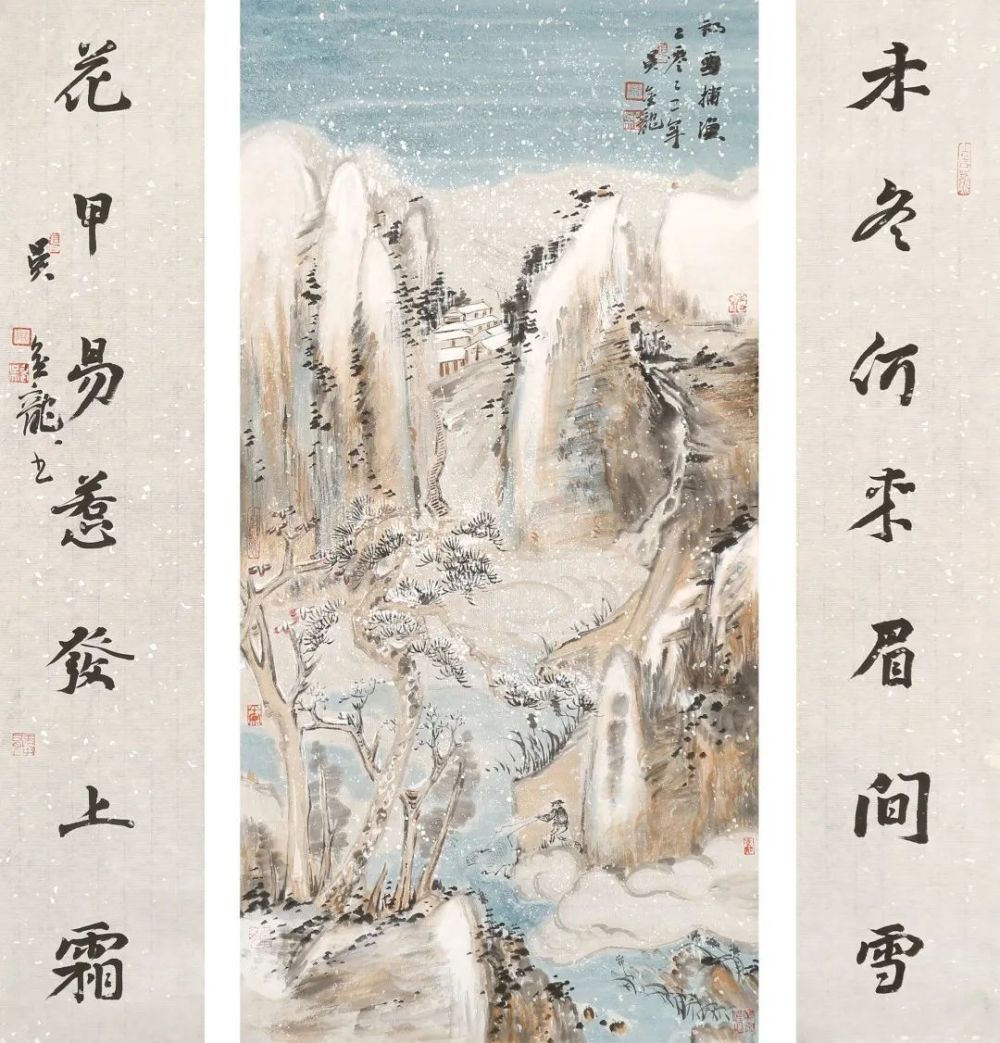 未冬何来眉间雪
初雪捕渔
二零二二年
吴金龍
花甲易惹發上霜
吴金龍书